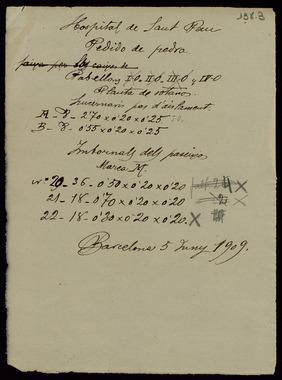 198.3
Hospital de Sant Pau
Pedido de pedra
para per los caixes de
Pabellons I-O. II-O. III-O y IV-O
Planta de sotans.
Lucernaris pas d'aislament.
A - 8 - 2'70 x 0'20 x 0'25
B - 8 - 0'55 x 0'20 x 0'25
Inbornals dels passius
Marca M.
nº 20 - 36 - 0'50 x 0'20 x 0'20
21 - 18 - 0'70 x 0'20 x 0'20
22 - 18 - 0'80 x 0'20 x 0'20. X
Barcelona 5 Juny 1909.